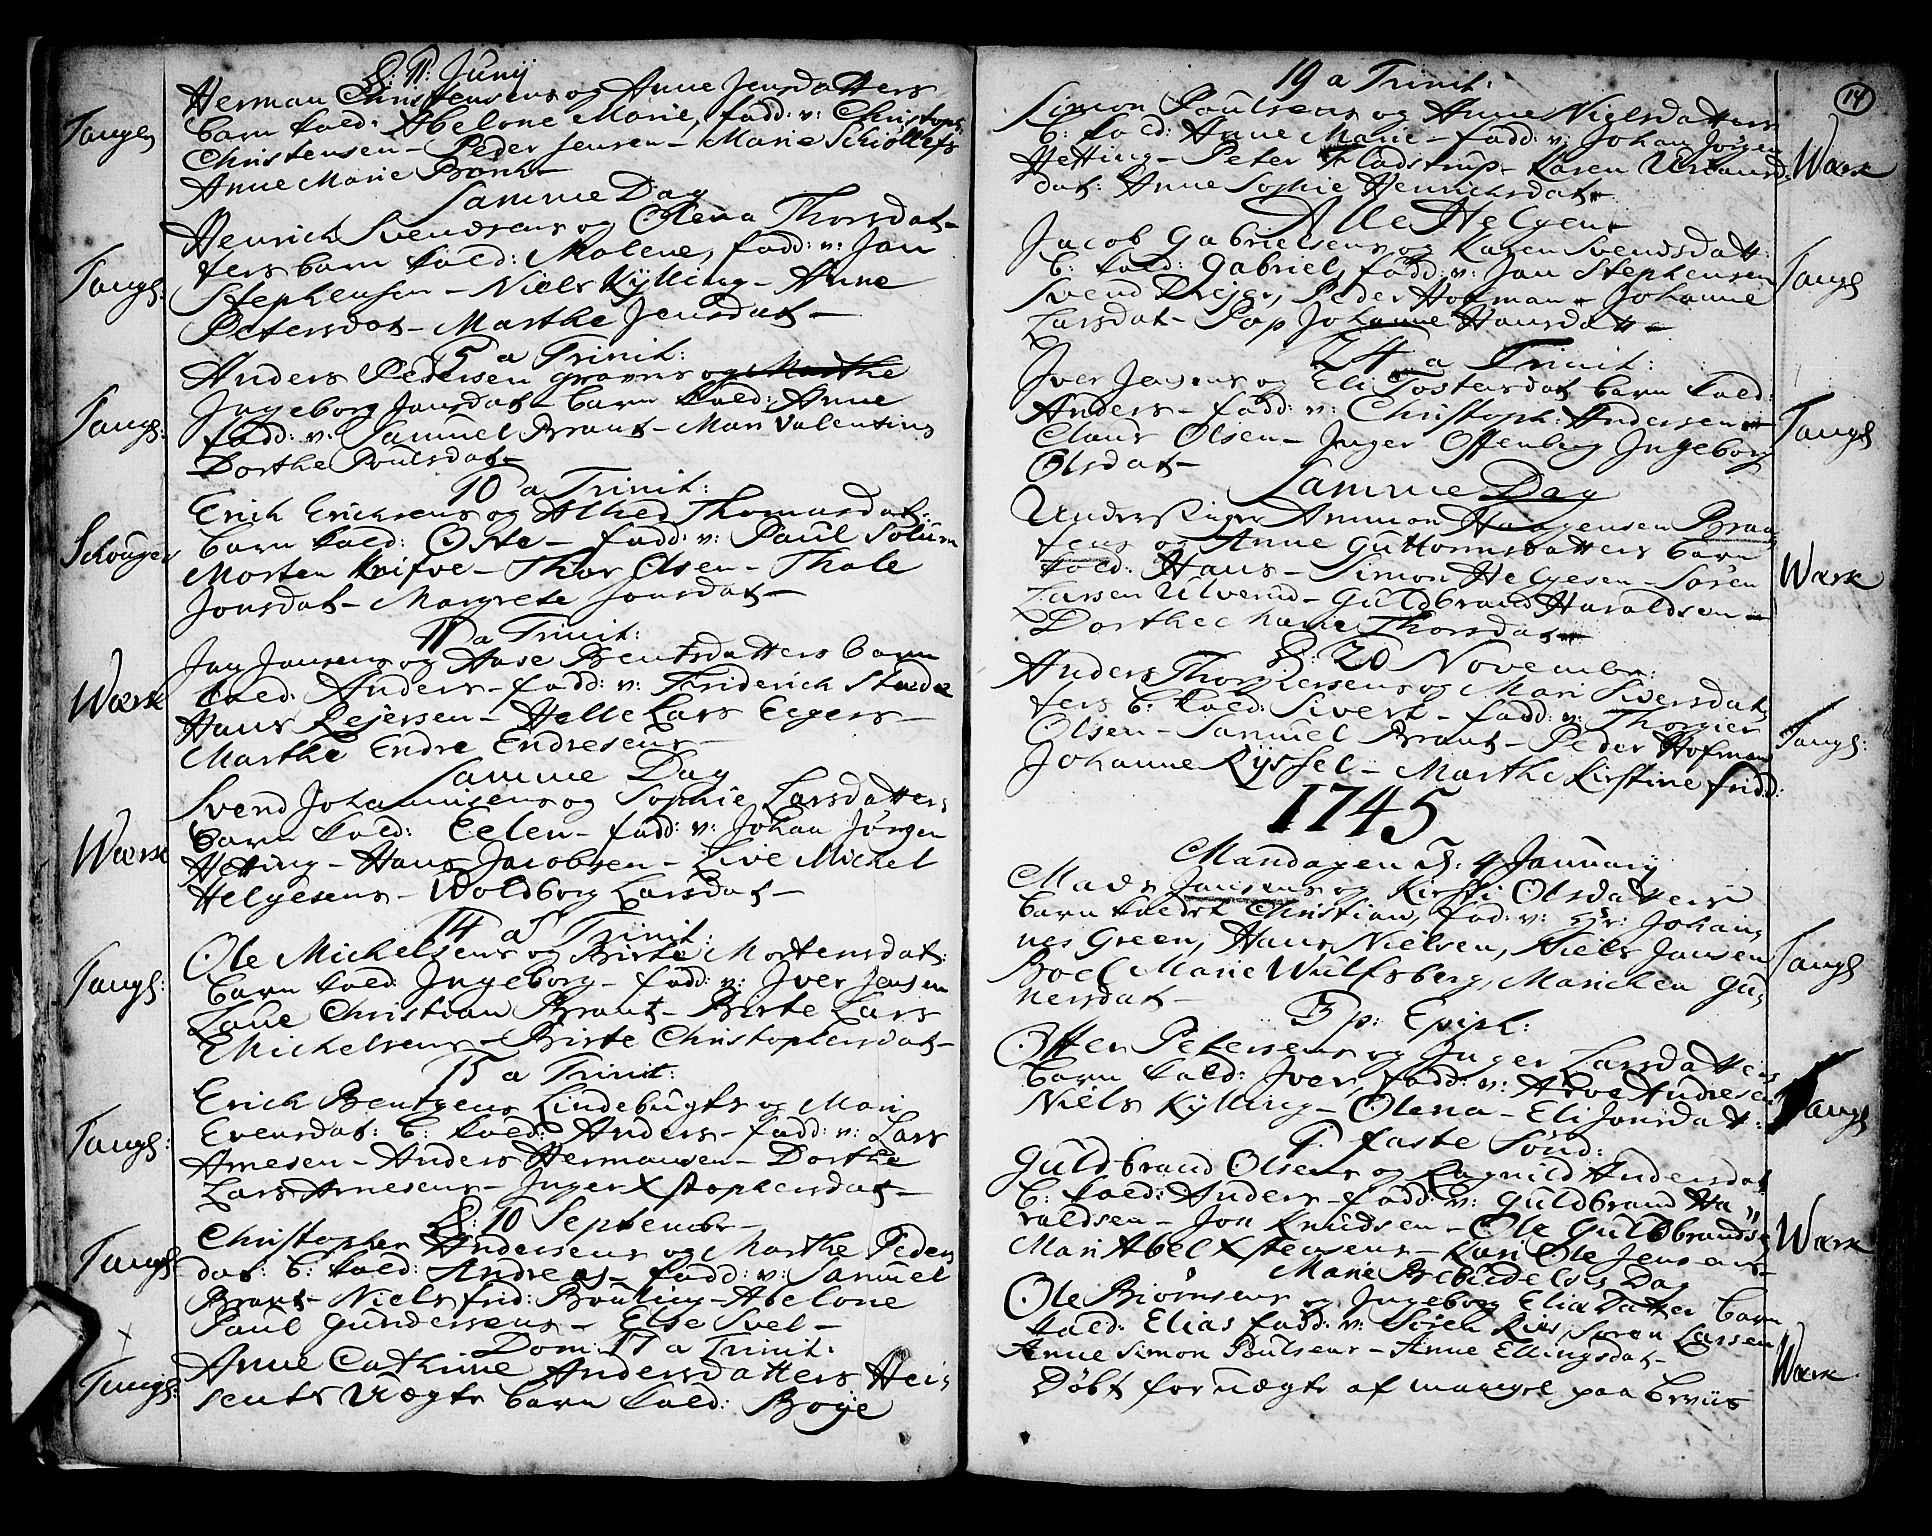 D: 11: Junij
Herman Christensens og Anne Jensdatters
Tangen
barn kald: Abelone Marie, fadd: v: Christoph:
Christensen – Peder Jensen – Marie Schiøllefs
Anne Marie Bønk –
Samme Dag
Henrich Svendsens og Olena Thorsdat-
Tang:
ters barn kald: Malene, fadd: v: Jan
Stephensen – Niels Kylling – Anne
Petersdat – Marthe Jensdat –
5 a Trinit:
Anders Pedersen gravers og Marthe
Tang:
Ingeborg Jansdat – barn kald: Anne
fadd: v: Samuel Brant – Mari Valentins
Dorthe Poulsdat –
10 a Trinit:
Erich Ericksens og Alhed Thomasdat:
Schouger
barn kald: Oste – fadd: v: Paul Solum
Morten Knifve – Thor Olsen – Thale
Jonsdat – Margrete Jonsdat –
11 a Trinit:
Jan Jansens og Aase Bentsdatters barn
Wærk
kald: Anders – fadd: v: Friderich Stude
Hans Rejersen – Helle Lars Eggers –
Marthe Endre Endresens –
Samme Dag
Svend Johannisens og Sophie Larsdatters
Wærk
barn kald: Eelen – fadd: v: Johan Jørgen
Hetting – Hans Jacobsen – Live Michel
Helgesens – Woldborg Larsdat –
14 a Trinit:
Ole Michelsens og Birte Mortensdat:
Tang:
barn kald Ingeborg – fadd: v: Jver Jensen
Laue Christian Brant – Birte Lars
Michelsens – Birte Christophersdat –
15 a Trinit:
Erich Bentzens Lindebugts og Mari
Tang:
Evensdat: b: kald: Anders – fadd: v: Lars
Arnesen – Anders Hermansen – Dorthe
Lars Arnesens – Inger Xstophersdat –
D: 10 Septembr –
Tang:
Christopher Andersens og Marthe Peders
dat: b: kald: Andreas – fadd: v: Samuel
Brant – Niels frid: Bouling – Abelone
Paul Gundersens – Else Svel –
Dom: 17 a Trinit:
Tang:
Anne Cathrine Andersdatters Hei-
sents Uægte barn kald: Boye
14
19 a Trinit:
Simon Poulsens og Anne Nielsdatters
Wærk
b: kald: Anne Marie – fadd: v: Johan Jørgen
Hetting – Peter Fladstrup – Karen
dat: Anne Sophie Henrichsdat –
Alle Helgen
Jacob Gabrielsens og Karen Svendsdatt:
Tang:
b: kald: Gabriel, fadd: v: Jan Stephensen
Svend Drejer, Peder Hofman – Johanne
Larsdat – Pap Johanne Hansdatt –
24 a Trinit:
Jver Jensens og Eli Tostensdat barn kald:
Tang:
Anders – fadd: v: Christoph: Andersen –
Claus Olsen – Inger Offenberg Ingeborg
Olsdat –
Samme Dag
Understiger Ammon Haagensen Braa-
Wærk
tens og Anne Guttormsdatters barn
kald: Hans – Simon Helgesen – Søren
Larsen Ulverud – Guldbrand Haraldsen –
Dorthe Thorsdat –
D: 20 Novembr:
Anders Thorgiersens og Mari Siversdat-
Tang:
ters b: kald: Sivert – fadd: v: Thorgier
Olsen – Samuel Brant – Peder Hofman
Johanne Ryssel – Marthe Kirstine fridd:
1745
Mandagen d: 4 January
Mads Jansens og Kirsti Olsdatters
barn kaldet Christian, fad: v: Hr: Johan-
Tang:
nes Green, Hans Nielsen, Niels Jansen
Boel Marie Wulfsberg, Maricken Gu-
nersdat –
3 p: Epiph:
Otter Petersens og Inger Larsdatters
Tang:
barn kald: Jver, fadd: v: Arve Andresen
Niels Kylling – Olena – Eli Jonsdatt:
1. faste Sønd:
Guldbrand Olsens og Ragnild Andersdat
Wærk
b: kald: Anders – fadd: v: Guldbrand Ha-
raldsen – Jon Knudsen – Ole Guldbrands:
Mari Abel Xstensens – Kari Ole Jensens –
Mariæ Bebudelsis Dag
Ole Biørnsens og Ingeborg Elia Datter barn
Wærk
kald: Elias fadd: v: Søren Riis, Søren Larsen
Anne Simon Poulsens – Anne Ellingsdat –
Døbt for uægte af mangel paa Beviis